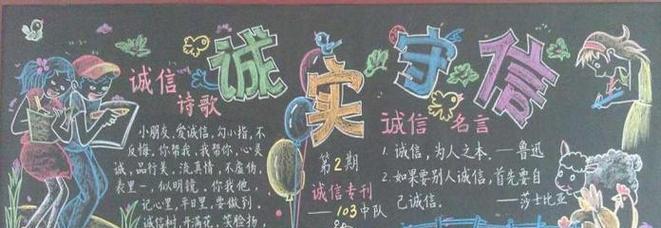 诚实守信
诚信
诗歌
小朋友、爱诚信,勾小指,不
反悔。你帮我,我帮你,心灵
诚,品行美。流真情,不虚伪,
表里一,似明镜。你我他,
记心里,平日里,要做到。
诚信树,开满花,笑脸扬,
第2期
诚信专刊
——103中队
诚信名言
1.诚信,为人之本。——鲁迅
2.如果要别人诚信,首先要自
己诚信。——莎士比亚